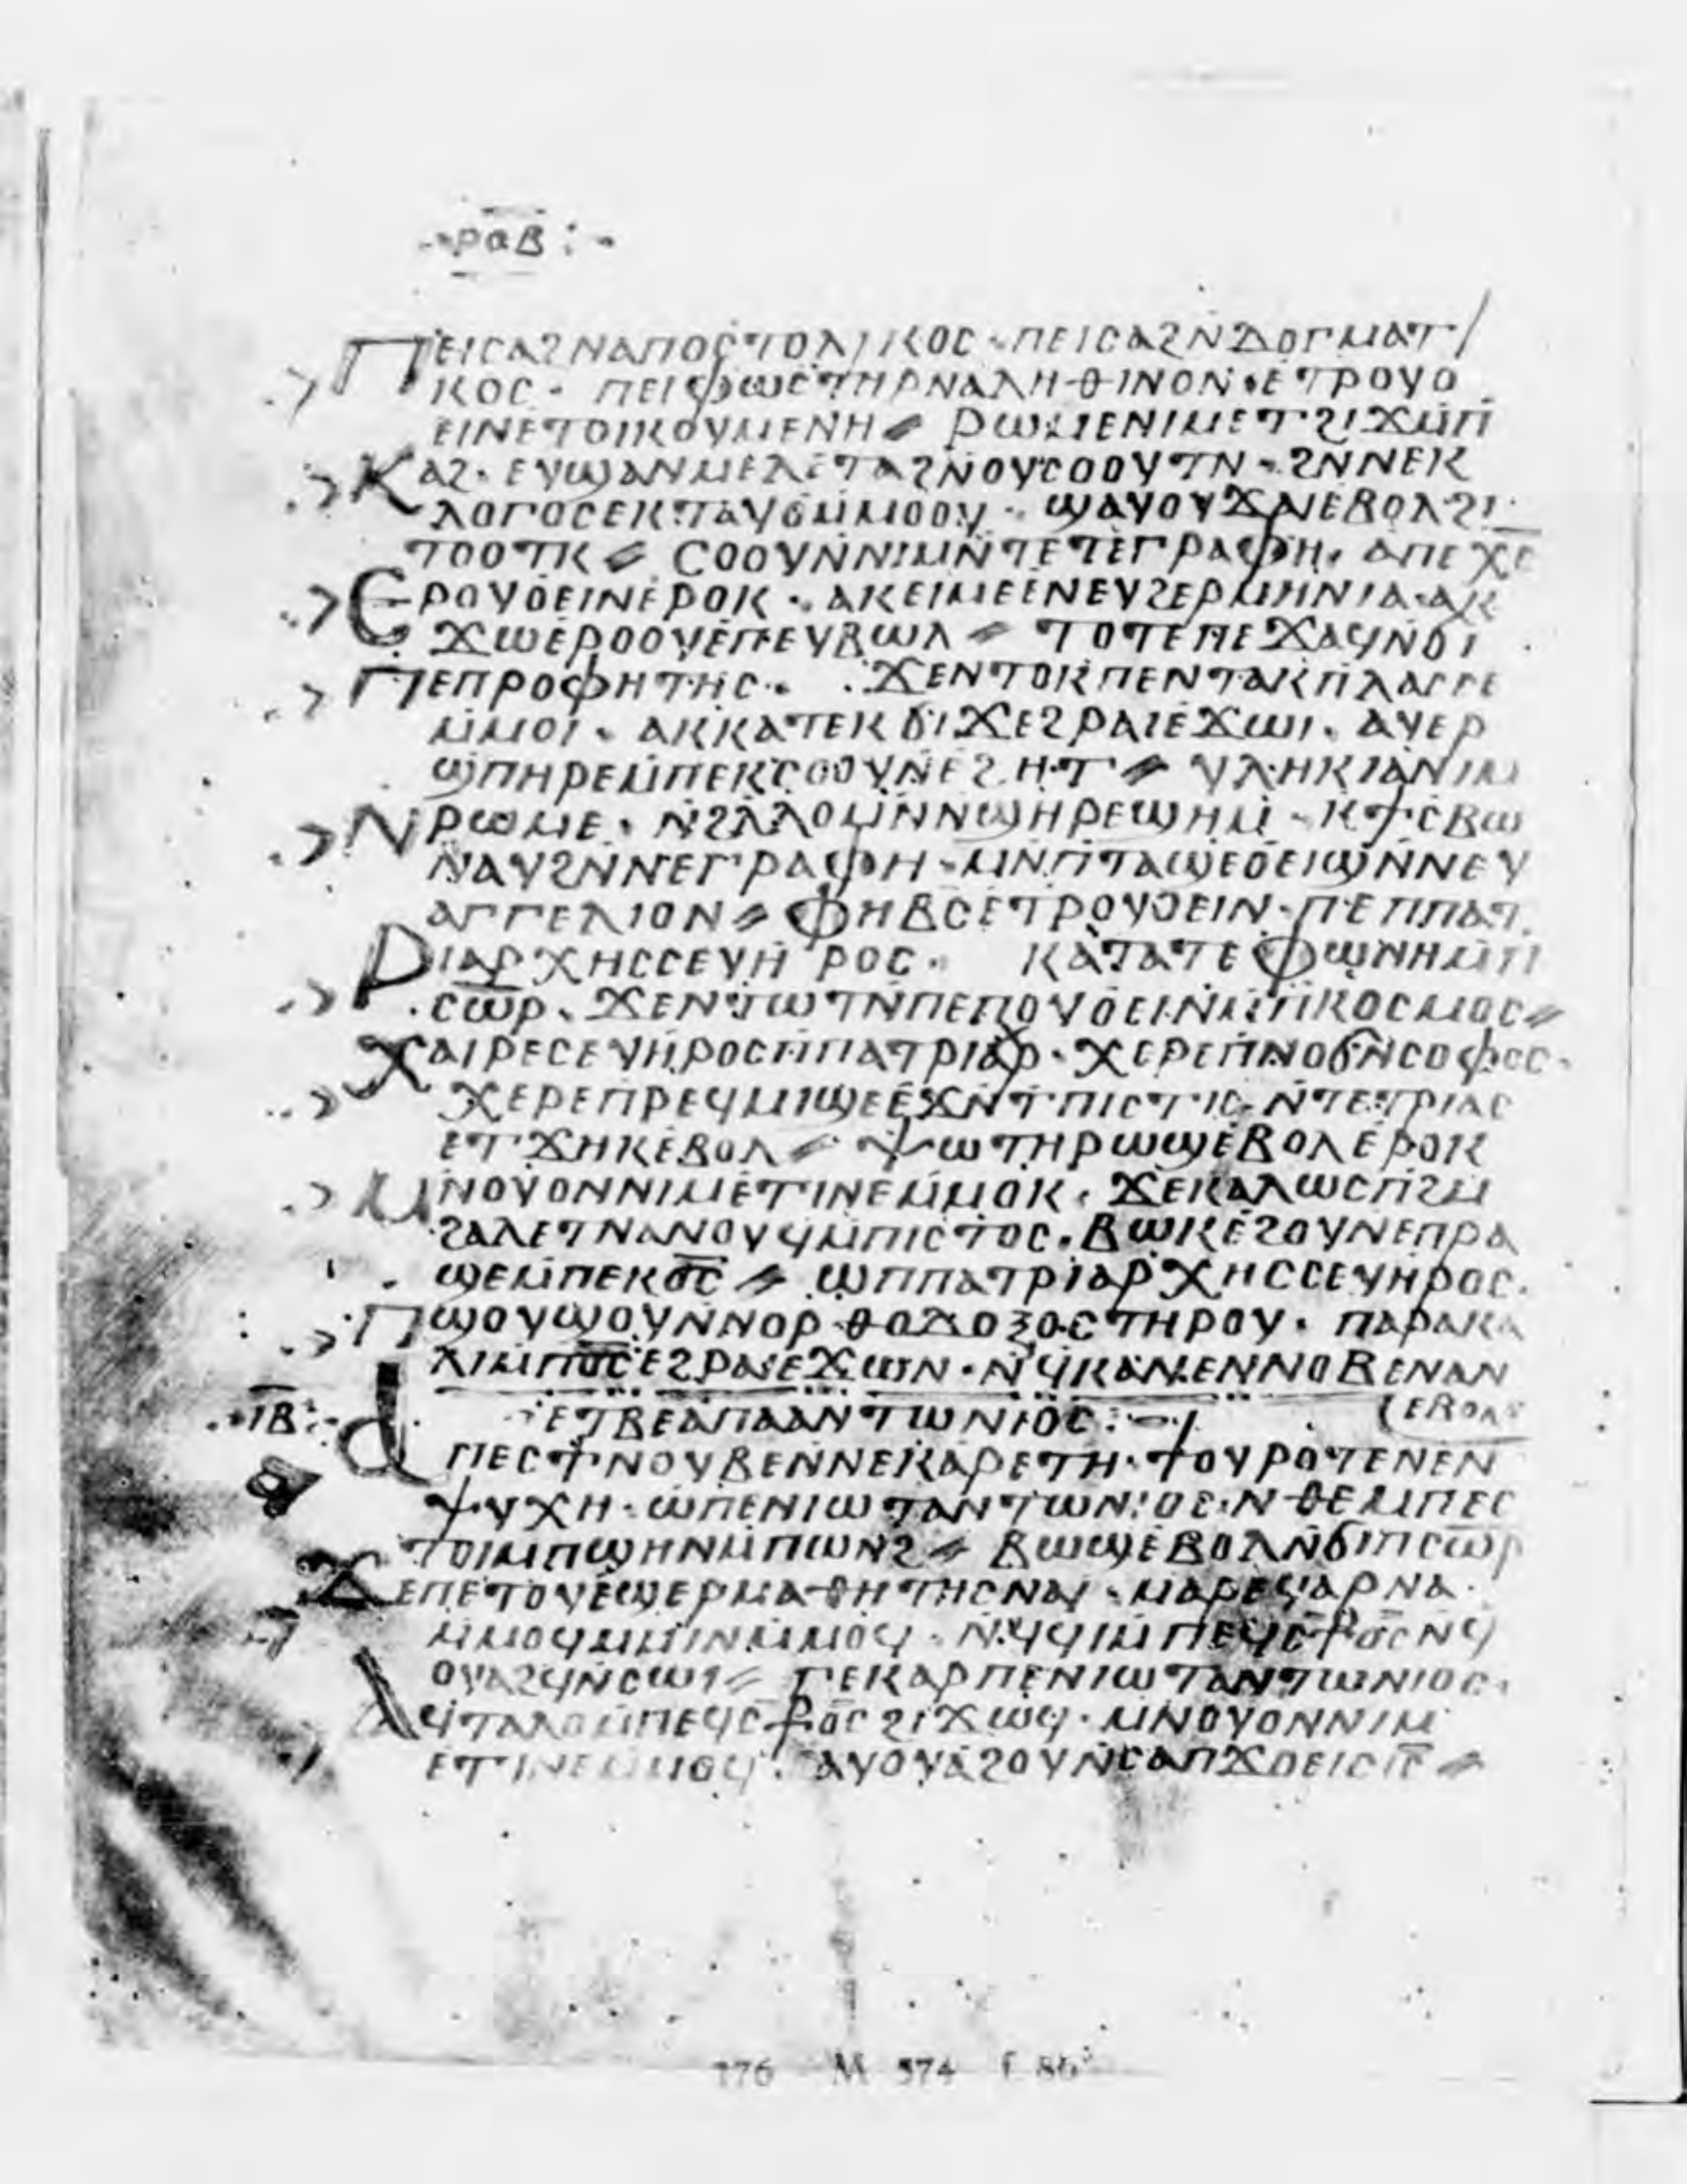 ⲣⲟⲃ
ⲠⲈⲒⲤⲀϨⲚⲀⲠⲞⲤⲦⲞⲖⲒⲔⲞⲤ · ⲠⲈⲒⲤⲀϨⲚⲆⲞⲄⲘⲀⲦ/
ⲔⲞⲤ · ⲠⲈⲒⲪⲰⲤⲦⲎⲢⲚⲀⲖⲎⲐⲒⲚⲞⲚ · ⲈⲦⲢⲞⲨⲞ
ⲈⲒⲚⲈⲦⲞⲒⲔⲞⲨⲘⲈⲚⲎ ⸗ ⲢⲰⲘⲈⲚⲒⲘⲈⲦϨⲒϪⲘⲠ
ⲔⲀϨ · ⲈⲨϢⲀⲚⲘⲈⲖⲈⲦⲀϨⲚⲞⲨⲤⲞⲞⲨⲦⲚ · ϨⲚⲚⲈⲔ
ⲖⲞⲄⲞⲤⲈⲔⲦⲀⲨⲞⲘⲘⲞⲞⲨ · ϢⲀⲨⲞⲨϪⲀⲒⲈⲂⲞⲖϨⲒ
ⲦⲞⲞⲦⲔ ⸗ ⲤⲞⲞⲨⲚⲚⲒⲘⲚⲦⲈⲦⲈⲄⲢⲀⲪⲎ · ⲀⲠⲈⲬⲤ
ⲈⲢⲞⲨⲞⲈⲒⲚⲈⲢⲞⲔ · ⲀⲔⲈⲒⲘⲈⲈⲚⲈⲨϨⲈⲢⲘⲎⲚⲒⲀ · ⲀⲔ
ϪⲰⲈⲢⲞⲞⲨⲈⲠⲈⲨⲂⲰⲖ ⸗ ⲦⲞⲦⲈⲠⲈϪⲀϤⲚϬⲒ
ⲠⲈⲠⲢⲞⲪⲎⲦⲎⲤ · ϪⲈⲚⲦⲞⲔⲠⲈⲚⲦⲀⲔⲠⲖⲀⲤⲤⲈ
ⲘⲘⲞⲒ · ⲀⲔⲔⲀⲦⲈⲔϬⲒϪⲈϨⲢⲀⲒⲈϪⲰⲒ · ⲀⲨⲈⲢ
ϢⲠⲎⲢⲈⲘⲠⲈⲔⲤⲞⲞⲨⲚⲈϨⲎⲦ ⸗ ⲨⲖⲎⲔⲒⲀⲚⲒⲘ
ⲚⲢⲰⲘⲈ · ⲚϨⲖⲖⲞⲘⲚⲚϢⲎⲢⲈϢⲎⲘ · ⲔϮⲤⲂⲰ
ⲚⲀⲨϨⲚⲚⲈⲄⲢⲀⲪⲎ · ⲘⲚⲠⲦⲀϢⲈⲞⲈⲒϢⲚⲚⲈⲨ
ⲀⲄⲄⲈⲖⲒⲞⲚ ⸗ ⲪⲎⲂⲤⲈⲦⲢⲞⲨⲞⲈⲒⲚ · ⲠⲈⲠⲠⲀⲦ
ⲢⲒⲀⲢⲬⲎⲤⲤⲈⲨⲎⲢⲞⲤ · ⲔⲀⲦⲀⲦⲈⲪⲰⲚⲎⲘⲠ
ⲤⲰⲢ · ϪⲈⲚⲦⲰⲦⲚⲠⲈⲠⲞⲨⲞⲈⲒⲚⲘⲠⲔⲞⲤⲘⲞⲤ ⸗
ⲬⲀⲒⲢⲈⲤⲈⲨⲎⲢⲞⲤⲠⲠⲀⲦⲢⲒⲀⲢⲬ · ⲬⲈⲢⲈⲠⲚⲞϬⲚⲤⲞⲪⲞⲤ ·
ⲬⲈⲢⲈⲠⲢⲈϤⲘⲒϢⲈⲈϪⲚⲦⲠⲒⲤⲦⲒⲤ · ⲚⲦⲈⲦⲢⲒⲀⲤ
ⲈⲦϪⲎⲔⲈⲂⲞⲖ ⸗ ⲮⲰⲦⲎⲢⲰϢⲈⲂⲞⲖⲈⲢⲞⲔ
ⲘⲚⲞⲨⲞⲚⲚⲒⲘⲈⲦⲒⲚⲈⲘⲘⲞⲔ · ϪⲈⲔⲀⲖⲰⲤⲠϨⲘ
ϨⲀⲖⲈⲦⲚⲀⲚⲞⲨϤⲘⲠⲒⲤⲦⲞⲤ · ⲂⲰⲔⲈϨⲞⲨⲚⲈⲠⲢⲀ
ϢⲈⲘⲠⲈⲔⲞⲤ ⸗ ⲰⲠⲠⲀⲦⲢⲒⲀⲢⲬⲎⲤⲤⲈⲨⲎⲢⲞⲤ ·
ⲠϢⲞⲨϢⲞⲨⲚⲚⲞⲢⲐⲞⲆⲞⲜⲞⲤⲦⲎⲢⲞⲨ · ⲠⲀⲢⲀⲔⲀ
ⲖⲒⲘⲠⲞⲤⲈϨⲢⲀⲒⲈϪⲰⲚ · ⲚϤⲔⲀⲚⲈⲚⲚⲞⲂⲈⲚⲀⲚ
(ⲈⲂⲞⲖ
ⲒⲂ ⲈⲦⲂⲈⲀⲠⲀⲀⲚⲦⲰⲚⲒⲞⲤ
ⲀⲠⲈⲤϮⲚⲞⲨⲂⲈⲚⲚⲈⲔⲀⲢⲈⲦⲎ · ϮⲞⲨⲢⲞⲦⲈⲚⲈⲚ
ⲮⲨⲬⲎ · ⲰⲠⲈⲚⲒⲰⲦⲀⲚⲦⲰⲚⲒⲞⲤ · ⲚⲐⲈⲘⲠⲈⲤ
ⲦⲞⲒⲘⲠϢⲎⲚⲘⲠⲰⲚϨ ⸗ ⲂⲰϢⲈⲂⲞⲖⲚϬⲒⲠⲤⲰⲢ
ϪⲈⲠⲈⲦⲞⲨⲈϢⲈⲢⲘⲀⲐⲎⲦⲎⲤⲚⲀⲒ · ⲘⲀⲢⲈϤⲀⲢⲚⲀ
ⲘⲘⲞϤⲘⲘⲒⲚⲘⲘⲞϤ · ⲚϤϤⲒⲘⲠⲈϤⲤ⳨ⲞⲤⲚϤ
ⲞⲨⲀϨϤⲚⲤⲰⲒ ⸗ ⲄⲈⲔⲀⲢⲠⲈⲚⲒⲰⲦⲀⲚⲦⲰⲚⲒⲞⲤ ·
ⲀϤⲦⲀⲖⲞⲘⲠⲈϤⲤ⳨ⲞⲤϨⲒϪⲰϤ · ⲘⲚⲞⲨⲞⲚⲚⲒⲘ
ⲈⲦⲒⲚⲈⲘⲘⲞϤ · ⲀⲨⲞⲨⲀϨⲞⲨⲚⲤⲀⲠϪⲞⲈⲒⲤ
176 M 574 f 86